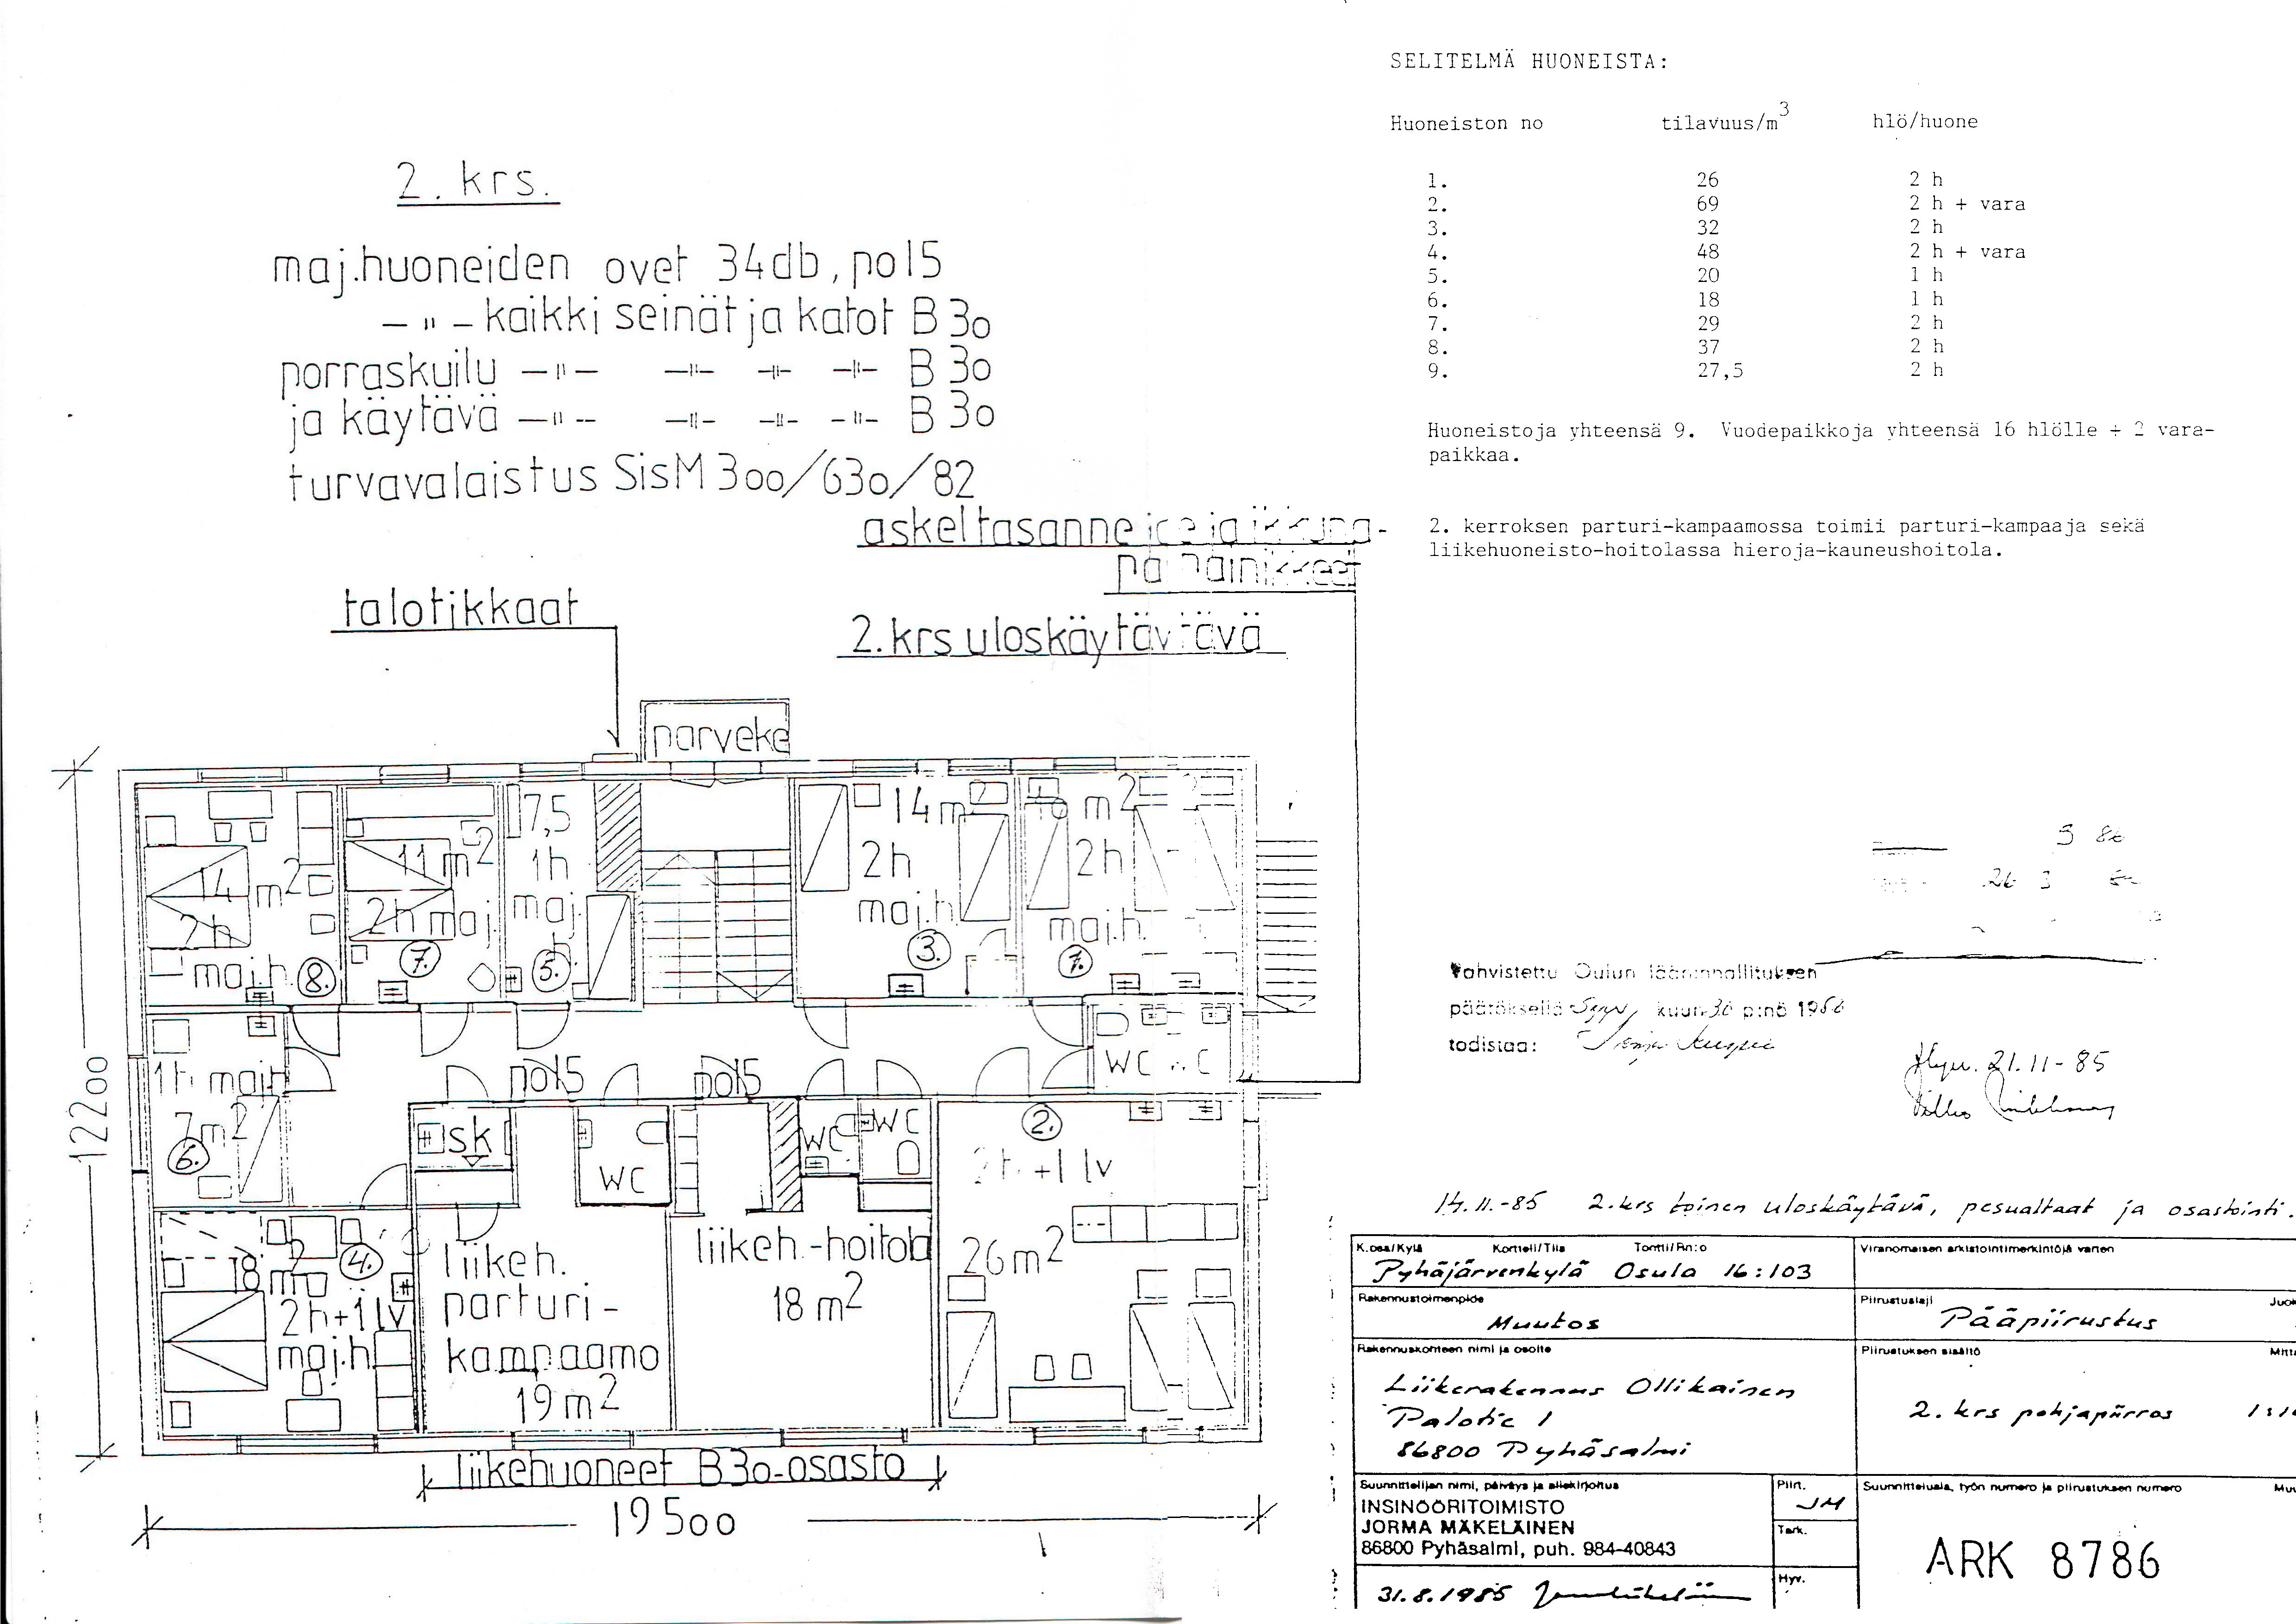 SELITELMÄ HUONEISTA:
Huoneiston no tilavuus/m3 hlö/huone
1. 26 2 h
2. 69 2 h + vara
3. 32 2 h
4. 48 2 h + vara
5. 20 1 h
6. 18 1 h
7. 29 2 h
8. 37 2 h
9. 27,5 2 h
Huoneistoja yhteensä 9. Vuodepaikkoja yhteensä 16 hlölle + 2 vara-
paikkaa.
2. kerroksen parturi-kampaamossa toimii parturi-kampaaja sekä
liikehuoneisto-hoitolassa hieroja-kauneushoitola.
2. krs.
maj.huoneiden ovet 34db, po15
– " – kaikki seinät ja katot B 30
porraskuilu – " – – " – – " – – " – B 30
ja käytävä – " – – " – – " – – " – B 30
turvavalaistus SisM 300/630/82
askeltasanne ja ikkuna-
2. krs uloskäytävä
talotikkaat
parveke
14 m2
2h
maj.h.
8.
11 m2
2h maj.
7.
7,5
1h
maj.
h
5.
14 m2
2h
maj.h.
3.
m2
2h
maj.h.
WC
po15
po15
1h maj.h
7m2
6.
SK
WC
WC
WC
2.
2h +1 lv
26m2
4.
18 m2
2h+1lv
maj.h
liikeh.
parturi-
kampaamo
19 m2
liikeh.-hoitola
18 m2
liikehuoneet B30-osasto
12200
19500
Vahvistettu Oulun lääninhallituksen
päätöksellä kuun 30 p:nä 1986
todistaa:
21.11-85
14.11.-85 2.krs toinen uloskäytävä, pesualtaat ja osastointi.
K.osa/Kylä Kortteli/Tila Tontti/Rn:o
Pyhäjärvenkylä Osula 16:103
Viranomaisen arkistointimerkintöjä varten
Rakennustoimenpide
Muutos
Piirustuslaji
Pääpiirustus
Juok
Rakennuskohteen nimi ja osoite
Liikerakennus Ollikainen
Palotie 1
86800 Pyhäsalmi
Piirustuksen sisältö
2. krs pohjapiirros
Mitta
Suunnittelijan nimi, päiväys ja allekirjoitus
INSINÖÖRITOIMISTO
JORMA MÄKELÄINEN
86800 Pyhäsalmi, puh. 984-40843
31.8.1985
Piirt.
JM
Tark.
Hyv.
Suunnitteluala, työn numero ja piirustuksen numero
Muu
ARK 8786